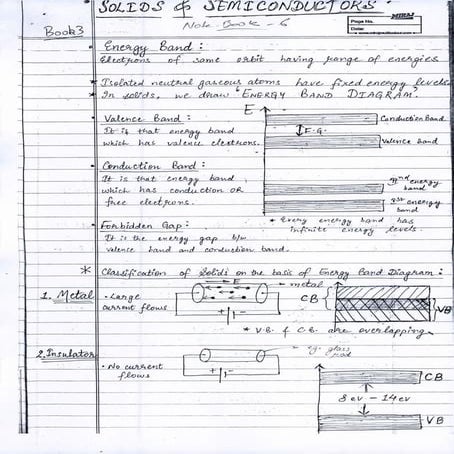 SOLIDS & SEMICONDUCTORS
Note-Book - 6
Page No.
Date:
Book3
Energy Band :
Electrons of same orbit having range of energies
Isolated neutral gaseous atoms have fixed energy levels
* In solids, we draw "ENERGY BAND DIAGRAM".
E
Valence Band :
It is that energy band
which has valence electrons.
Conduction Band
E.G.
Valence band
Conduction Band :
It is that energy band
which has conduction OR
free electrons.
2nd energy
band
1st energy
band
* Every energy band has
infinite energy levels.
Forbidden Gap :
It is the energy gap b/w
valence band and conduction band.
* Classification of Solids on the basis of Energy Band Diagram :
1. Metal
• Large
current flows
E
metal
+ -
CB
VB
* V.B. & C.B. are overlapping
2. Insulator
• No current
flows
eg. glass
rod
+ -
CB
8 ev - 14 ev
VB